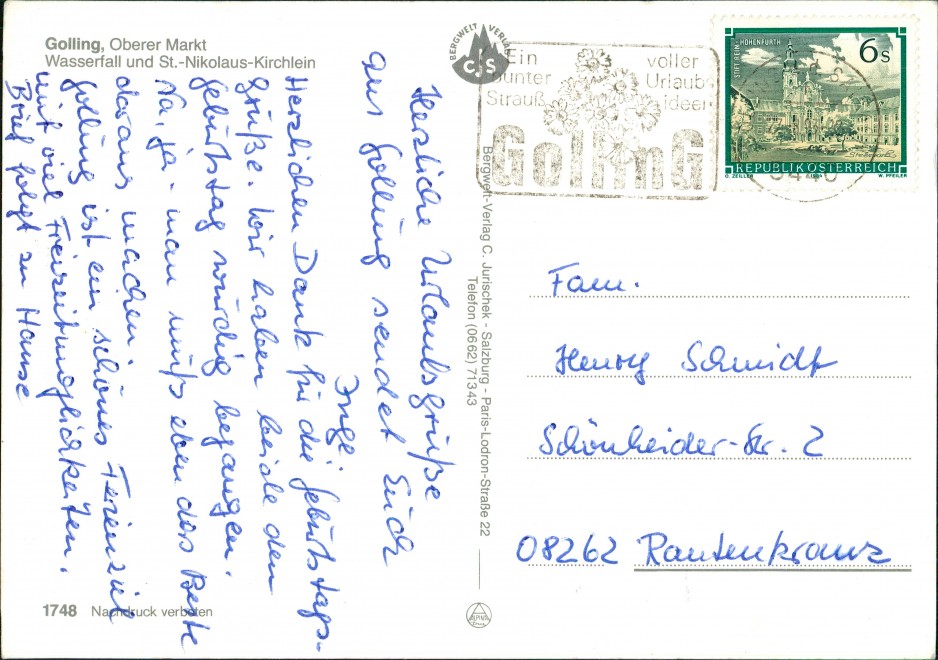 Golling, Oberer Markt
Wasserfall und St.-Nikolaus-Kirchlein
Herzliche Urlaubsgrüße
aus Golling sendet Euch
Inge.
Herzlichen Dank für die Geburtstags-
grüße. Wir haben beide den
Geburtstag würdig begangen.
Na, ja. man muß eben das Beste
daraus machen.
Golling ist ein schönes Ferienziel
mit viel Freizeitmöglichkeiten.
Brief folgt zu Hause
1748 Nachdruck verboten
BERGWELT VERLAG
CJS
Bergwelt-Verlag C. Jurischek - Salzburg - Paris-Lodron-Straße 22
Telefon (0662) 71343
ALPINA
Ein
bunter
Strauß
voller
Urlaubs
ideen
GollinG
STIFT REIN-HOHENFURTH
6 S
REPUBLIK ÖSTERREICH
O. ZEILLER
W. PFEILER
Fam.
Henry Schmidt
Schönheider-Str. 2
08262 Rautenkranz